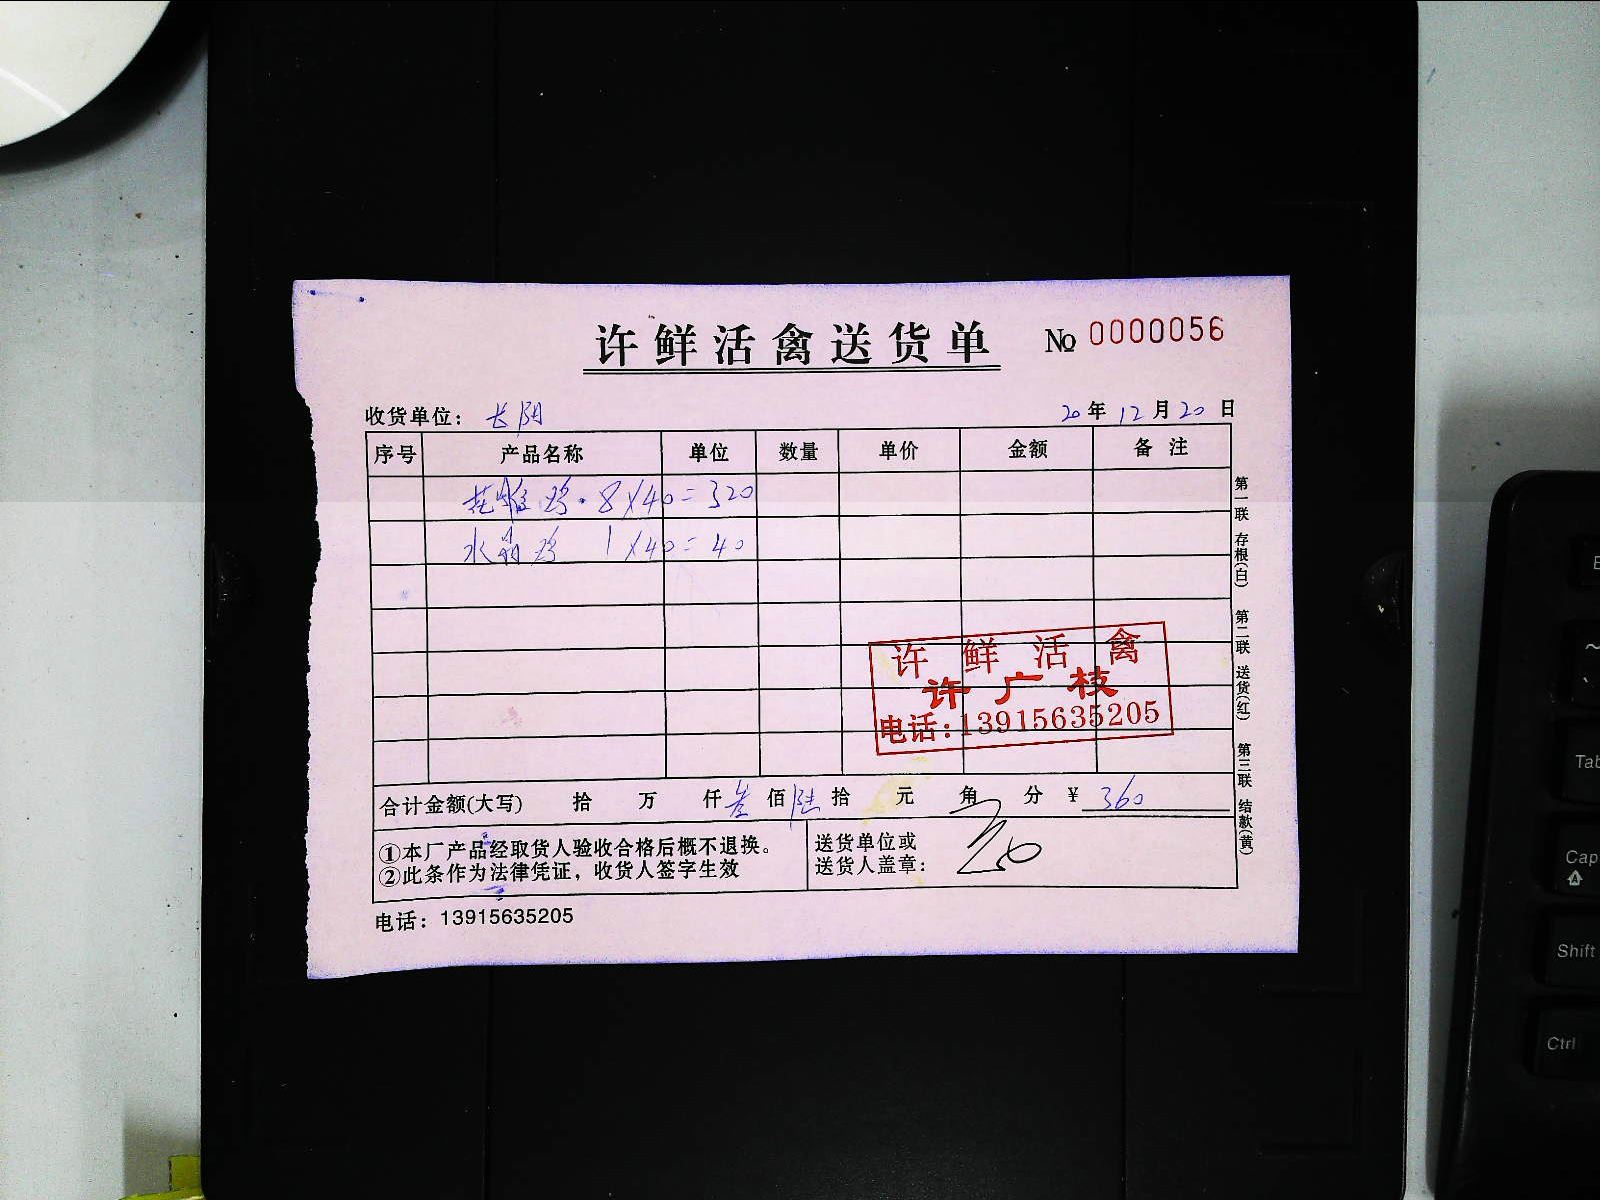 许鲜活禽送货单 № 0000056
收货单位： 长阴 20年12月20日
序号 产品名称 单位 数量 单价 金额 备注
花雕鸡·8×40=320
水晶鸡 1×40=40
许鲜活禽
许广枝
电话:13915635205
合计金额(大写) 拾 万 仟叁佰陆拾 元 角 分 ¥ 360
①本厂产品经取货人验收合格后概不退换。
②此条作为法律凭证，收货人签字生效
送货单位或
送货人盖章：
电话：13915635205
第一联 存根(白) 第二联 送货(红) 第三联 结款(黄)
Tab
Cap
Shift
Ctrl